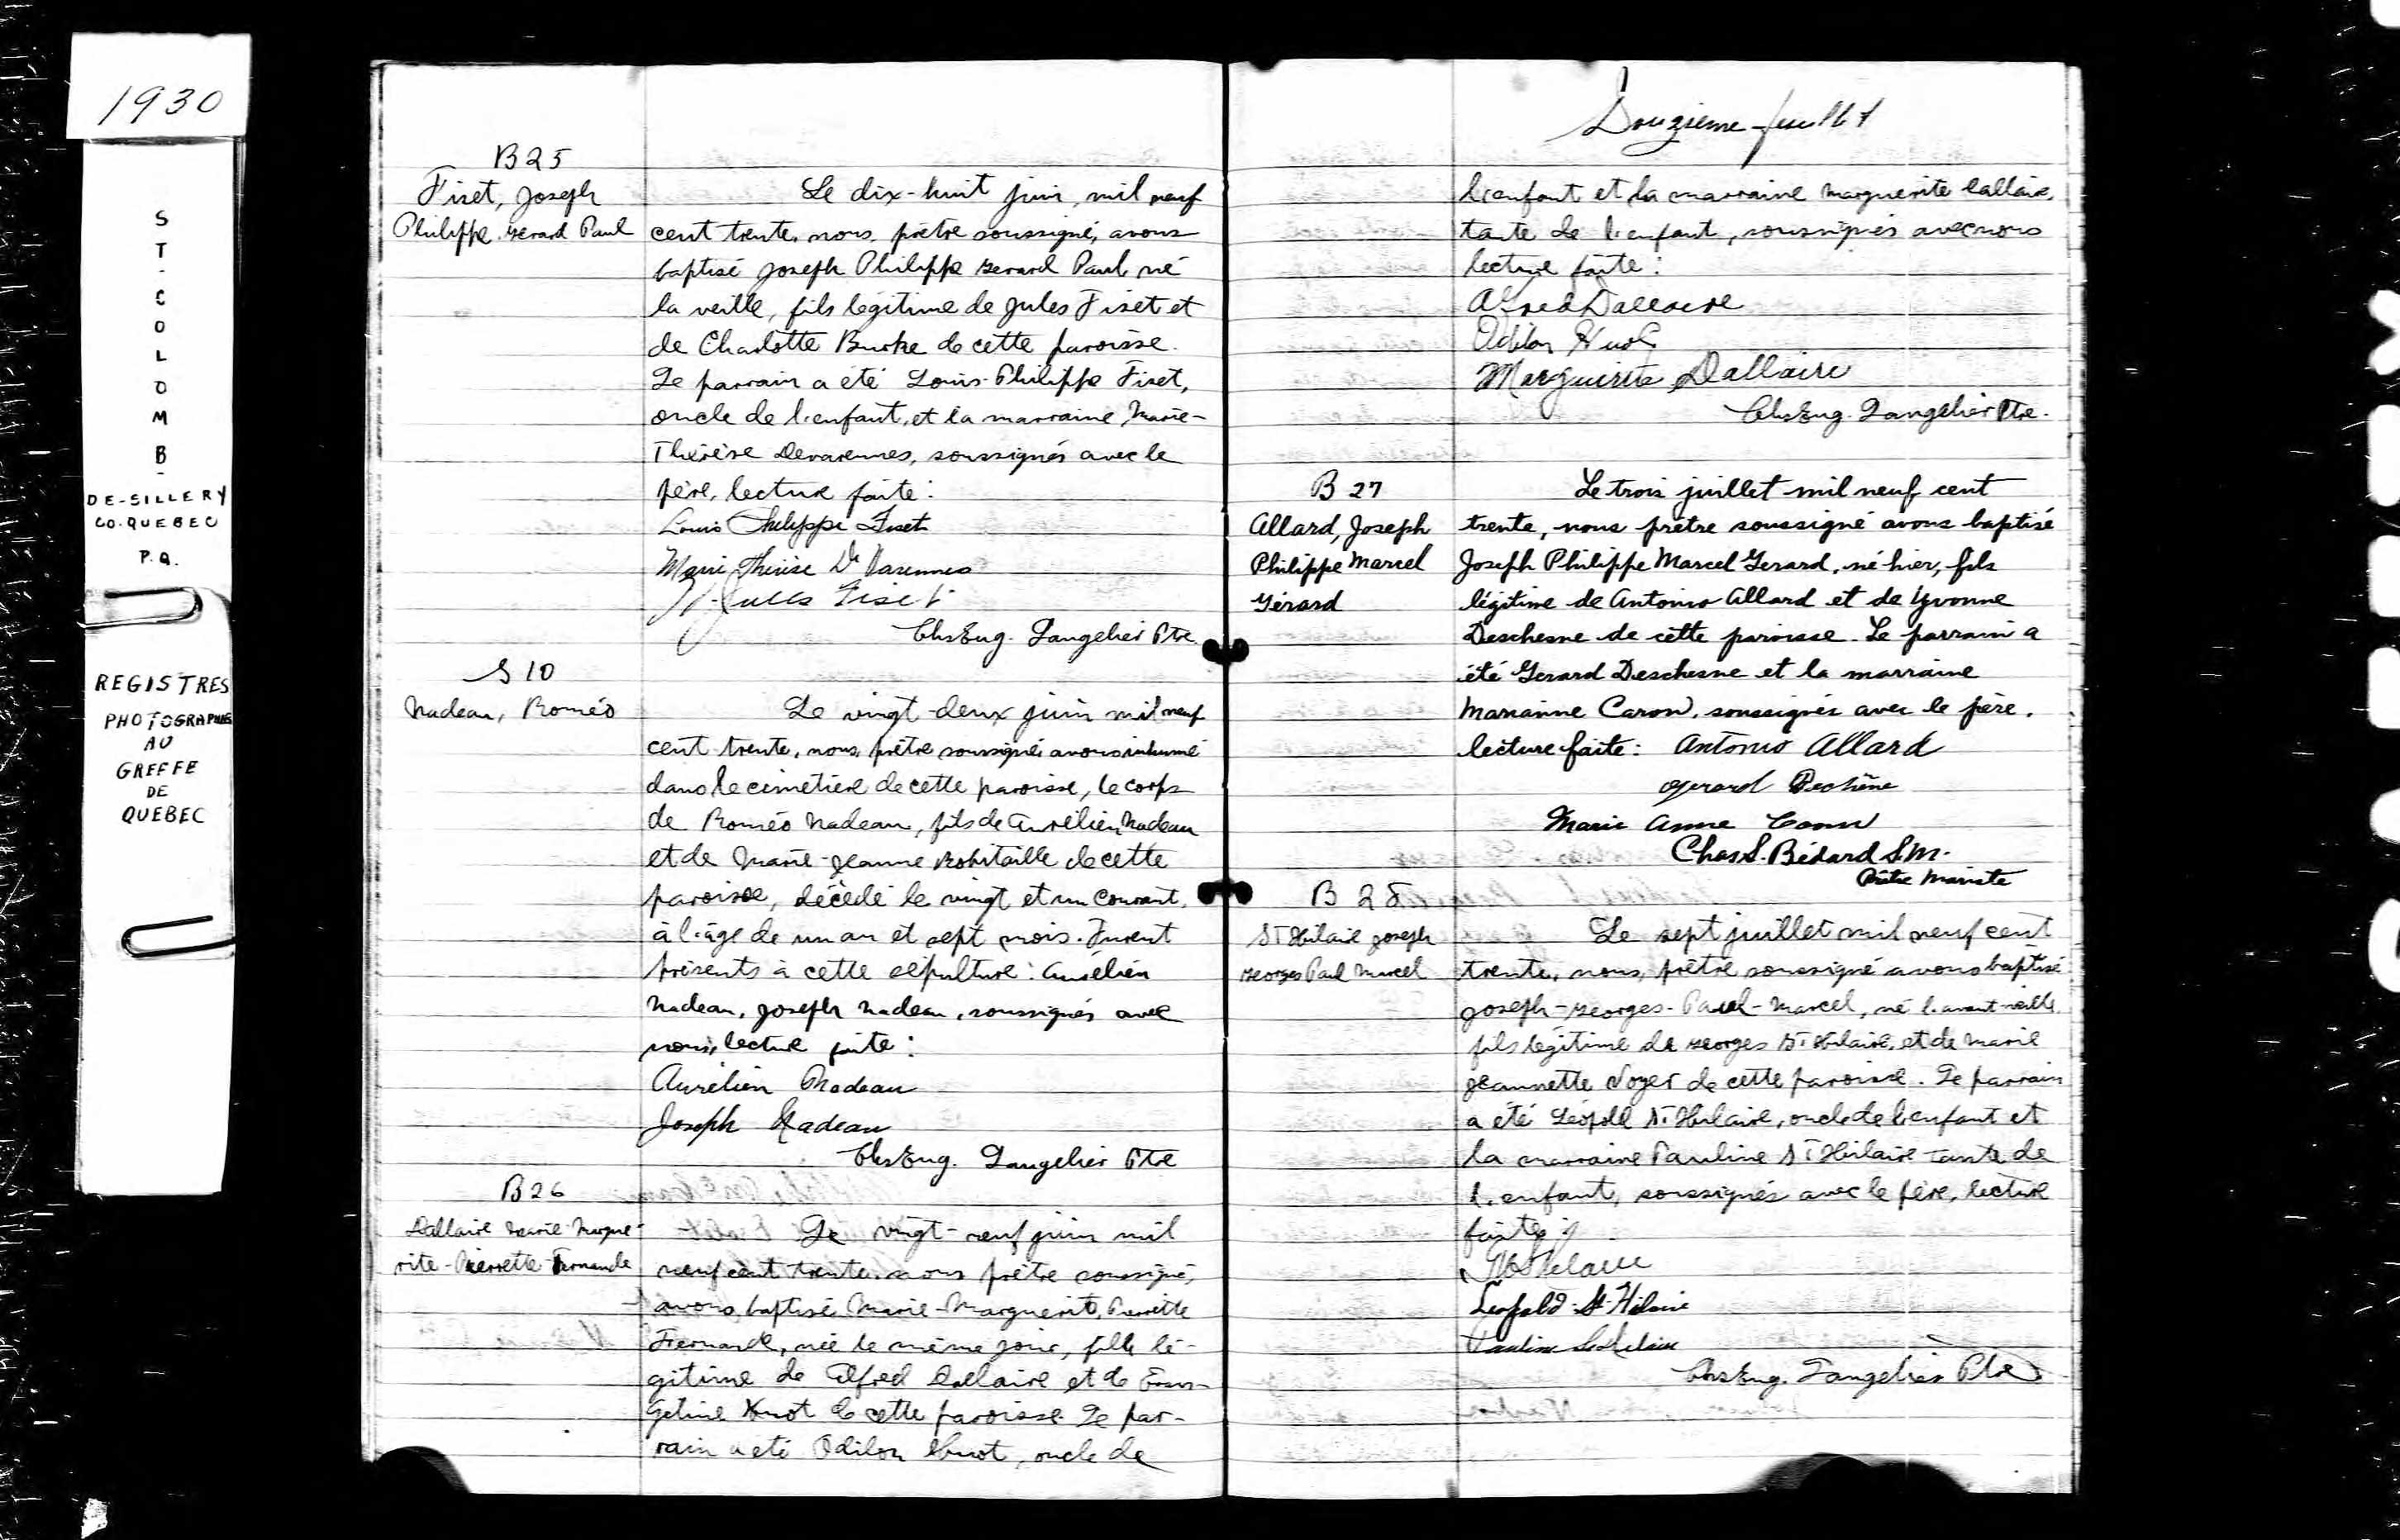 1930
ST-COLOMB-
DE-SILLERY
CO. QUEBEC
P.Q.
REGISTRES
PHOTOGRAPHIES
AU
GREFFE
DE
QUEBEC
B25
Fiset, Joseph
Philippe, Gérard Paul
Le dix-huit juin, mil neuf
cent trente, nous, prêtre soussigné, avons
baptisé Joseph Philippe Gerard Paul, né
la veille, fils légitime de Jules Fiset et
de Charlotte Burke de cette paroisse.
Le parrain a été Louis-Philippe Fiset,
oncle de l'enfant, et la marraine, Marie-
Thérèse Devarennes, soussignés avec le
père, lecture faite:
Louis Philippe Fiset
Marie Thérèse De Varennes
J. Jules Fiset
Chs Eug. Langelier Ptre
S 10
Nadeau, Roméo
Le vingt-deux juin mil neuf
cent trente, nous, prêtre soussigné avons inhumé
dans le cimetière de cette paroisse, le corps
de Roméo Nadeau, fils de Aurélien Nadeau
et de Marie-Jeanne Robitaille de cette
paroisse, décédé le vingt et un courant,
à l'âge de un an et sept mois. Furent
présents à cette sépulture: Aurélien
Nadeau, Joseph Nadeau, soussignés avec
nous, lecture faite:
Aurélien Nadeau
Joseph Nadeau
Chs Eug. Langelier Ptre
B26
Dallaire Marie-Margue-
rite-Pierrette-Fernande
Le vingt-neuf juin mil
neuf cent trente, nous prêtre soussigné,
avons baptisé Marie-Marguerite, Pierrette
Fernande, née le même jour, fille lé-
gitime de Alfred Dallaire et de Evan-
geline Huot de cette paroisse. Le par-
rain a été Odilon Huot, oncle de
Douzième feuillet
l'enfant et la marraine Marguerite Dallaire,
tante de l'enfant, soussignés avec nous
lecture faite:
Alfred Dallaire
Odilon Huot
Marguerite Dallaire
Chs Eug. Langelier Ptre.
B 27
Allard, Joseph
Philippe Marcel
Gérard
Le trois juillet mil neuf cent
trente, nous prêtre soussigné avons baptisé
Joseph Philippe Marcel Gerard, né hier, fils
légitime de Antonio Allard et de Yvonne
Deschesne de cette paroisse. Le parrain a
été Gerard Deschesne et la marraine
Marianne Caron, soussignés avec le père.
lecture faite: Antonio Allard
Gerard Dechêne
Marie Anne Caron
Chas S. Bédard S.M.
Prêtre Mariste
B 28
St Hilaire Joseph
Georges Paul Marcel
Le sept juillet mil neuf cent
trente, nous, prêtre soussigné avons baptisé
Joseph-Georges-Paul-Marcel, né l'avant-veille,
fils légitime de Georges St Hilaire, et de Marie
Jeannette Voyer de cette paroisse. Le parrain
a été Léopold St Hilaire, oncle de l'enfant et
la marraine Pauline St Hilaire tante de
l'enfant, soussignés avec le père, lecture
faite:
G St Hilaire
Leopold St-Hilaire
Pauline St Hilaire
Chs Eug. Langelier Ptre